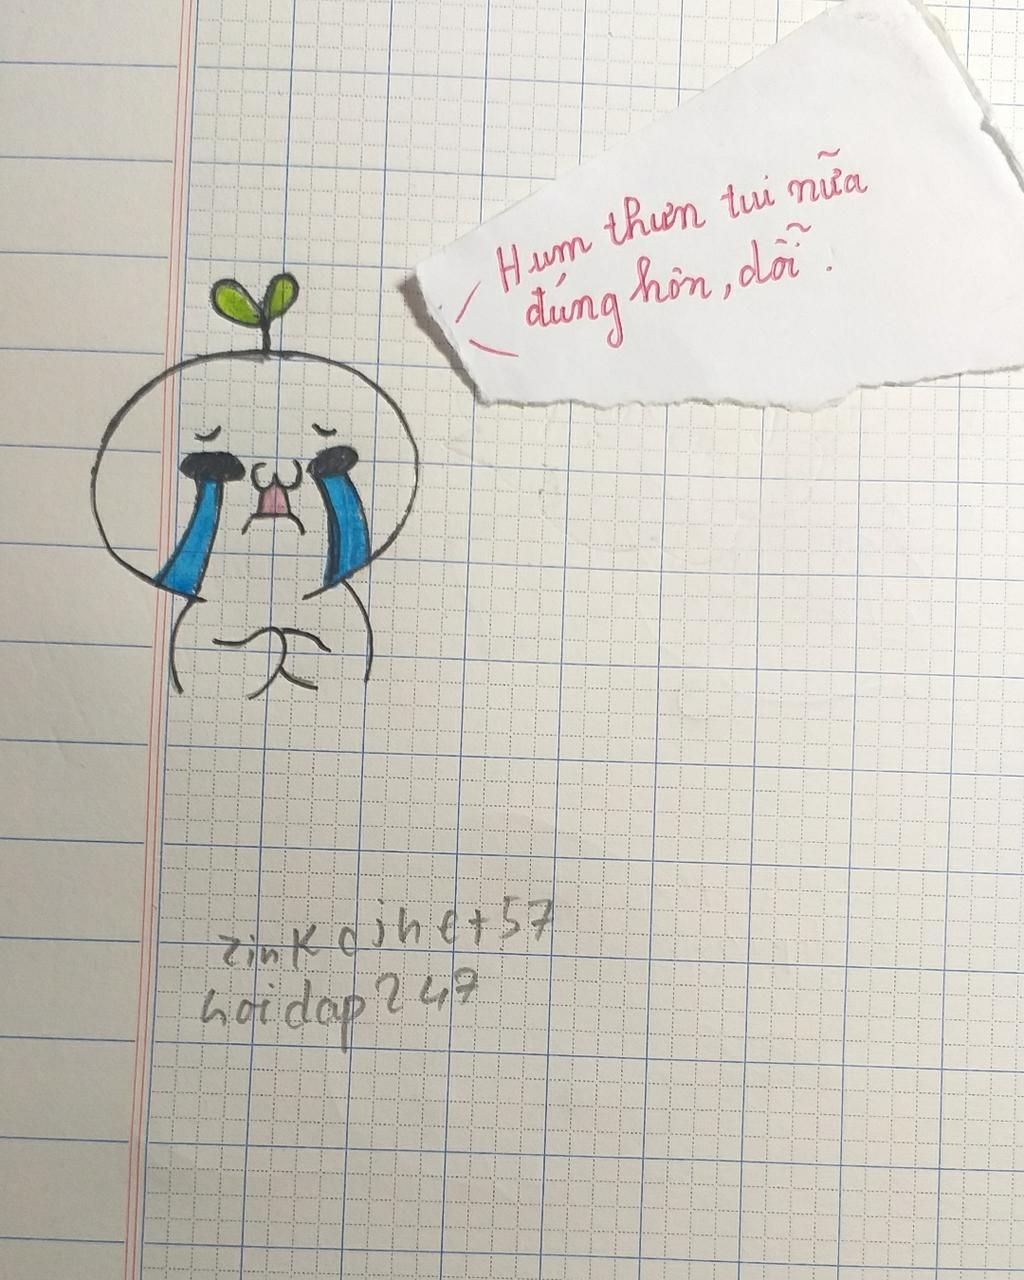 Hum thưn tui nữa
đúng hôn, dỗi.
zinkdjhet57
hoidap247